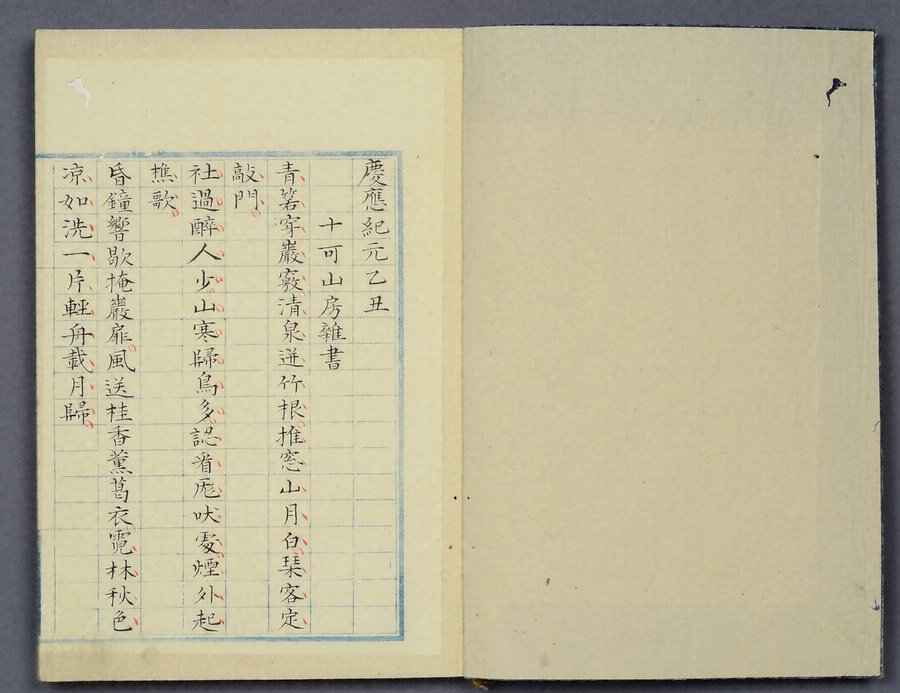 慶應紀元乙丑
十可山房雜書
青箬穿巖竅清泉迸竹根推窓山月白琹客定
敲門
社過醉人少山寒歸鳥多認看厖吠處煙外起
樵歌
昏鐘響歇掩巖扉風送桂香薰葛衣霓林秋色
凉如洗一片輕舟載月歸